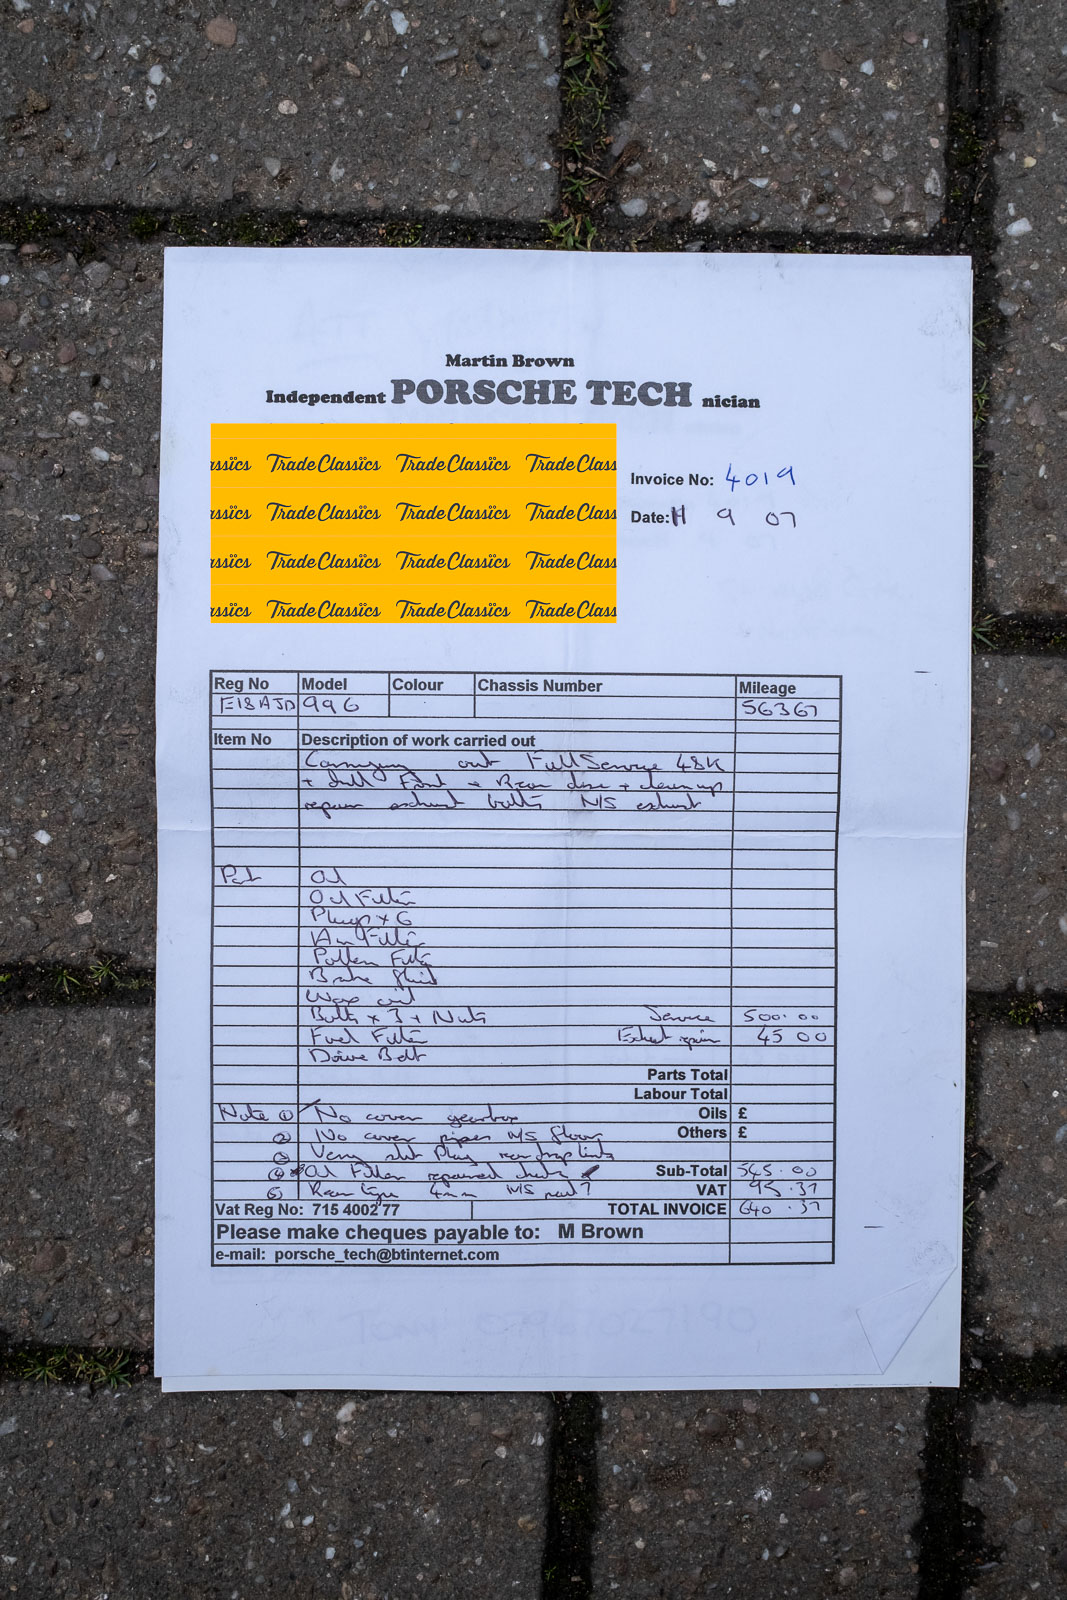 Martin Brown
Independent PORSCHE TECH nician
TradeClassics TradeClassics TradeClass
TradeClassics TradeClassics TradeClass
TradeClassics TradeClassics TradeClass
TradeClassics TradeClassics TradeClass
Invoice No: 4019
Date: 11 9 07
Reg No Model Colour Chassis Number Mileage
E18AJD 996 56367
Item No Description of work carried out
Carrying out Full Service 48K
+ Front + Rear + clean up
repair exhaust bolts N/S exhaust
Part Oil
Oil Filter
Plugs x 6
Air Filter
Pollen Filter
Brake fluid
Wax oil
Bolts x 3 + Nuts Service 500.00
Fuel Filter Exhaust repair 45 00
Drive Belt
Parts Total
Labour Total
Note ① No cover gearbox Oils £
② No cover pipes N/S floor Others £
③ Very slit Play rear drop links
④ Oil Filler repaired Sub-Total 545.00
⑤ Rear tyre 4mm N/S VAT 95.37
Vat Reg No: 715 4002 77 TOTAL INVOICE 640.37
Please make cheques payable to: M Brown
e-mail: porsche_tech@btinternet.com